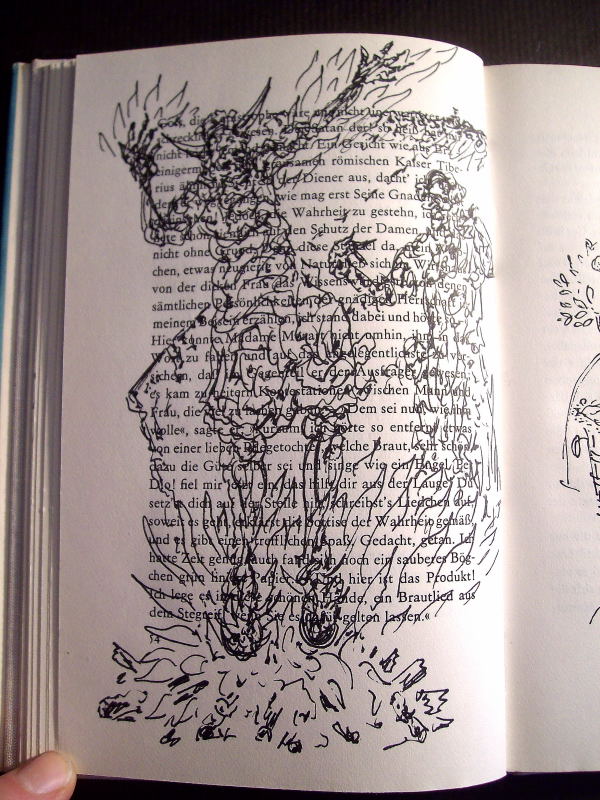 Gott, die und nicht
Der Satan der! so hieß der
nicht Ein Gesicht wie aus
einigerm grausamen römischen Kaiser Tibe-
rius der Diener aus, dacht' ich
wie mag erst Seine Gnaden
die Wahrheit zu gestehn, ich
auf den Schutz der Damen,
nicht ohne Grund. Denn diese Stanzel da, mein
chen, etwas neugierig von Natur, ließ sich
von der dicken Frau das Wissenswürdigste von denen
sämtlichen Persönlichkeiten der gnädigen Herrschaft in
meinem Beisein erzählen, ich stand dabei und hörte so
Hier konnte Madame Mozart nicht umhin, ihm in das
Wort zu fallen und auf das angelegentlichste zu ver-
sichern, daß im Gegenteil er der Ausfrager gewesen;
es kam zu heitern Kontestationen zwischen Mann und
Frau, die viel zu lachen gaben. – »Dem sei nun wie ihm
wolle«, sagte er, »kurzum, ich hörte so entfernt etwas
von einer lieben Pflegetochter, welche Braut, sehr schön,
dazu die Güte selber sei und singe wie ein Engel. Per
Dio! fiel mir jetzt ein, das hilft dir aus der Lauge! Du
setz'st dich auf der Stelle hin, schreibst's Liedchen auf,
soweit es geht, erklärst die Sottise der Wahrheit gemäß,
und es gibt einen trefflichen Spaß. Gedacht, getan. Ich
hatte Zeit genug, auch fand sich noch ein sauberes Bög-
chen grün liniert Papier. – Und hier ist das Produkt!
Ich lege es in diese schönen Hände, ein Brautlied aus
dem Stegreif, wenn Sie es dafür gelten lassen.«
54